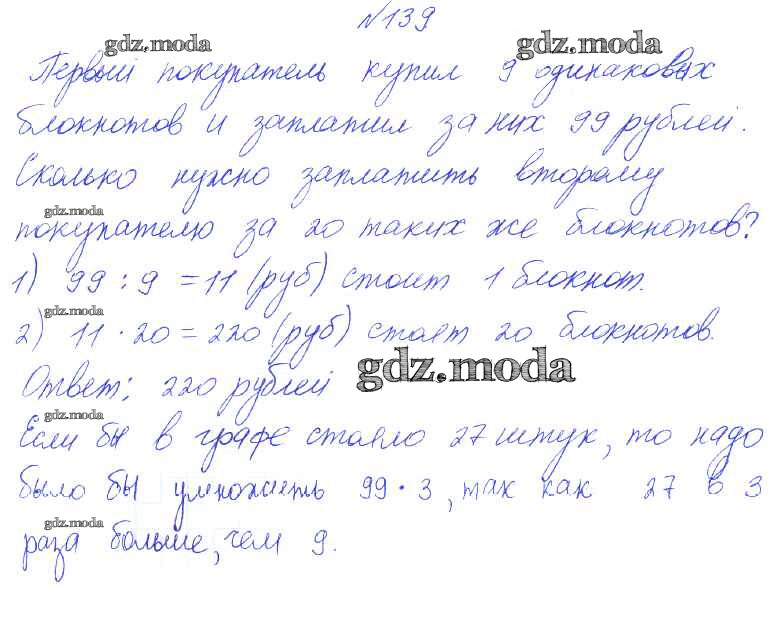 №139
gdz.moda gdz.moda
Первый покупатель купил 9 одинаковых
блокнотов и заплатил за них 99 рублей.
Сколько нужно заплатить второму
gdz.moda
покупателю за 20 таких же блокнотов?
1) 99 : 9 = 11 (руб) стоит 1 блокнот.
gdz.moda
2) 11 · 20 = 220 (руб) стоят 20 блокнотов.
gdz.moda
Ответ: 220 рублей
gdz.moda
Если бы в графе стояло 27 штук, то надо
было бы умножить 99 · 3, так как 27 в 3
gdz.moda
раза больше, чем 9.